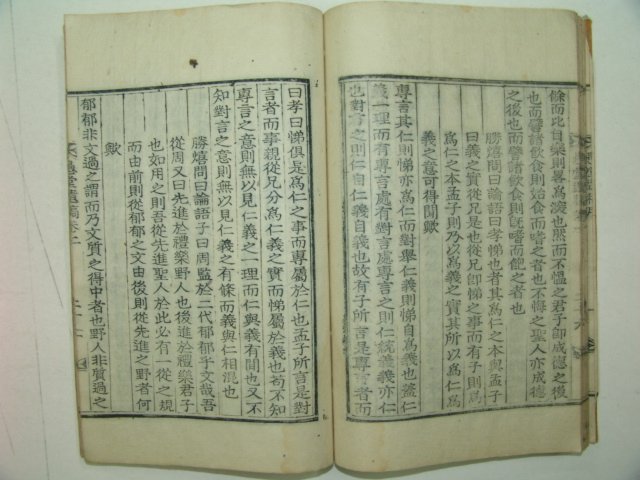 條而此自樂則畧爲淺也然而不慍之君子卽成德之後
也而譬諸飮食則始食而嗜之者也不悔之聖人亦成德
之後也而譬諸飮食則旣嗜而飽之者也
勝熺問曰論語曰孝悌也者其爲仁之本與孟子
曰義之實從兄是也從兄卽悌之事而有子則爲
爲仁之本孟子則乃以爲義之實其所以爲仁爲
義之意可得聞歟
專言其仁則悌亦爲仁而對舉仁義則悌自爲義也盖仁
義一理而有專言處有對言處專言之則仁統義義亦仁
也對言之則仁自仁義自義也故有子所言是專言者而
曰孝曰悌俱是爲仁之事而專屬於仁也孟子所言是對
言者而事親從兄分爲仁義之實而悌屬於義也苟不知
專言之意則無以見仁義之一理而仁與義有間也又不
知對言之意則無以見仁義之有條而義與仁相混也
勝熺問曰論語子曰周監於二代郁郁乎文哉吾
從周又曰先進於禮樂野人也後進於禮樂君子
也如用之則吾從先進聖人於此必有一從之規
而由前則從郁郁之文由後則從先進之野者何
歟
郁郁非文過之謂而乃文質之得中者也野人非質過之
堂遺稿卷二